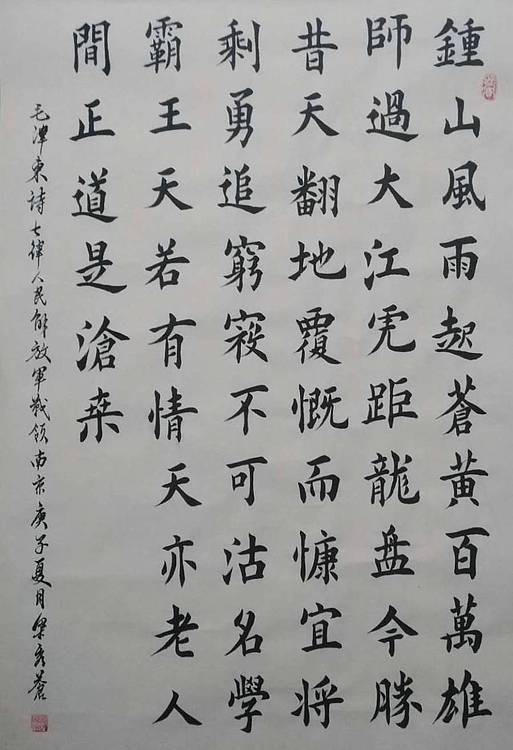 鍾山風雨起蒼黄百萬雄
師過大江虎距龍盘今勝
昔天翻地覆慨而慷宜将
剩勇追窮寇不可沽名學
霸王天若有情天亦老人
間正道是滄桒
毛澤東詩七律人民解放軍戰領南京庚子夏月